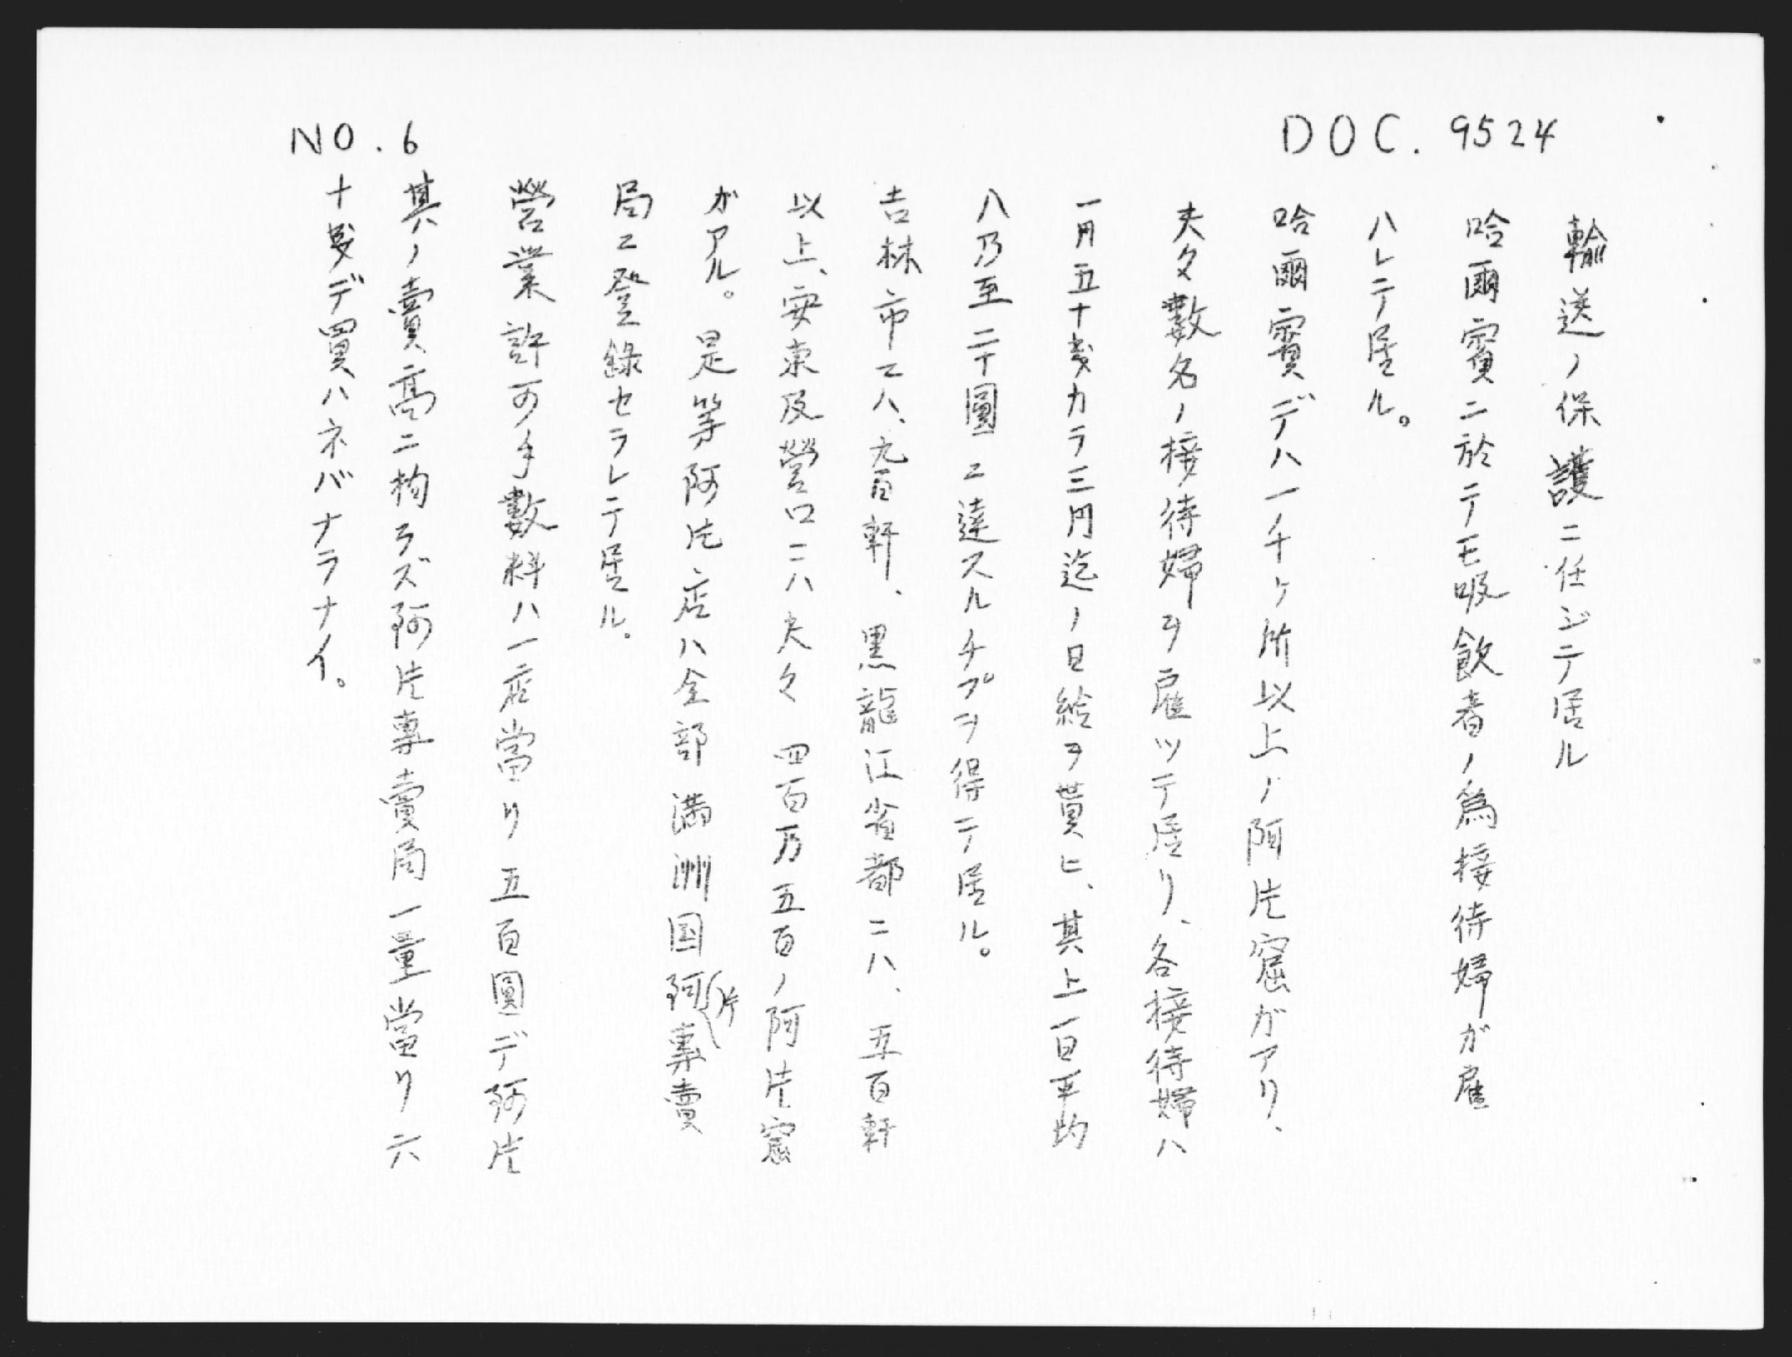 DOC. 9524
輸送ノ保護ニ任ジテ居ル
哈爾賓ニ於テモ吸飲者ノ爲接待婦ガ雇
ハレテ居ル。
哈爾賓デハ一千ヶ所以上ノ阿片窟ガアリ、
夫々數名ノ接待婦ヲ雇ツテ居リ、各接待婦ハ
一月五十戔カラ三円迄ノ日給ヲ貰ヒ、其上一日平均
八乃至二十圓ニ達スルチプヲ得テ居ル。
吉林市ニハ、九百軒、黒龍江省都ニハ、五百軒
以上、安東及營口ニハ夫々四百乃五百ノ阿片窟
ガアル。是等阿片店ハ全部満洲国阿(片)專賣
局ニ登錄セラレテ居ル。
營業許可手數料ハ一店當リ五百圓デ阿片
其ノ賣高ニ拘ラズ阿片專賣局一量當リ六
十戔デ買ハネバナラナイ。
NO. 6